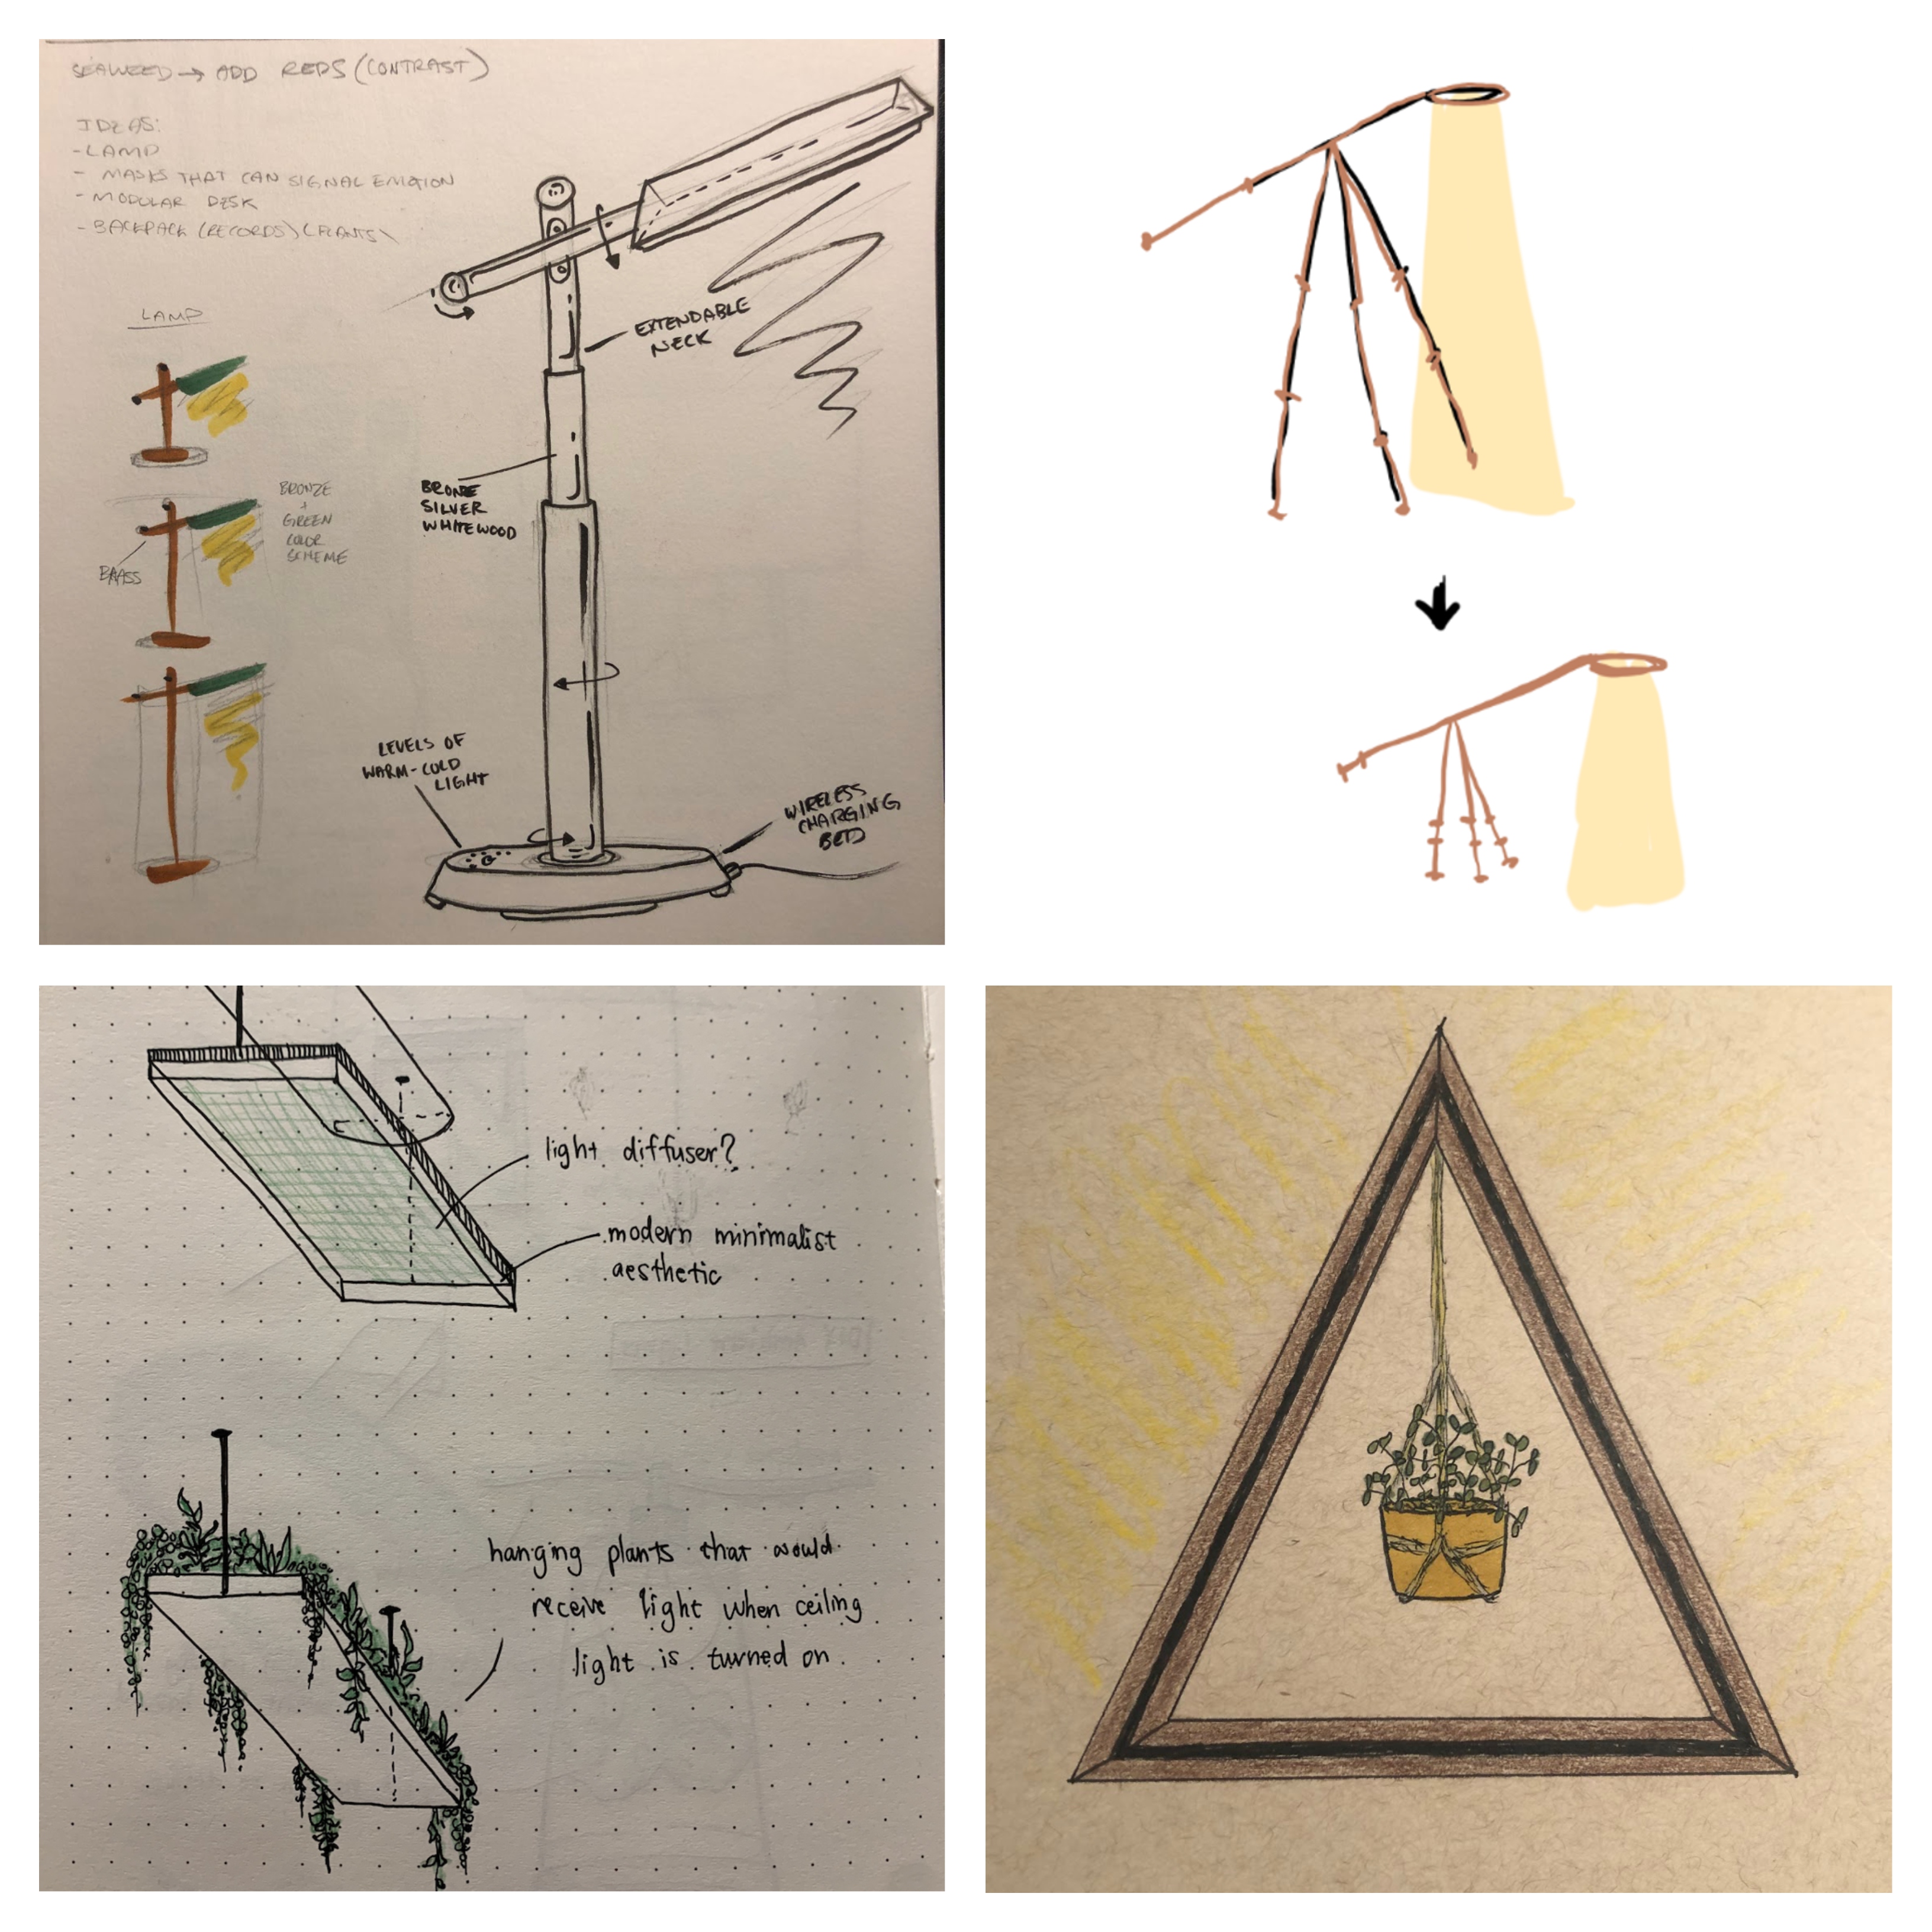 SEAWEED → ADD REDS (CONTRAST)
IDEAS:
- LAMP
- MASKS THAT CAN SIGNAL EMOTION
- MODULAR DESK
- BACKPACK (RECORDS) (PLANTS)
LAMP
BRONZE
+
GREEN
COLOR
SCHEME
BRASS
EXTENDABLE
NECK
BRONZE
SILVER
WHITEWOOD
LEVELS OF
WARM-COLD
LIGHT
WIRELESS
CHARGING
BED
light diffuser?
modern minimalist
aesthetic
hanging plants that would
receive light when ceiling
light is turned on